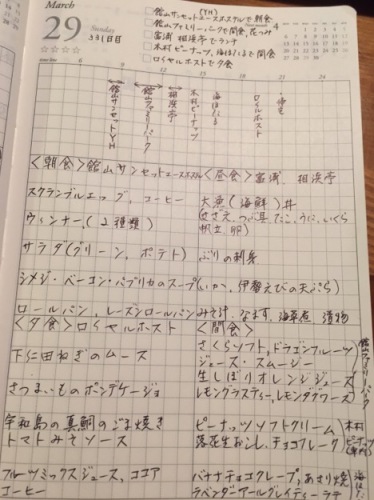 March
29 Sunday
3月1日目
(YH)
館山サンセットユースホステルで朝食
館山ファミリーパークで間食, 花つみ
富浦 相浜亭でランチ
木村ピーナッツ、海ほたるで間食
ロイヤルホストで夕食
6 9 12 15 18 21 24
館山サンセットYH
館山ファミリーパーク
相浜亭
木村ピーナッツ
海ほたる
ロイヤルホスト
・帰宅
<朝食>館山サンセットユースホステル
スクランブルエッグ、コーヒー
ウィンナー, (2種類)
サラダ(グリーン、ポテト)
シメジ・ベーコン・パプリカのスープ
ロールパン, レーズンロールパン
<昼食>富浦、相浜亭
大漁(海鮮)丼
(さざえ、つぶ貝、たこ、うに、いくら
帆立、卵)
ぶりの刺身
(いか、伊勢えびの天ぷら)
みそ汁、なます、海草煮 漬物
<夕食>ロイヤルホスト
下仁田ねぎのムース
さつまいものポンデケージョ
宇和島の真鯛のごま焼き
トマトみそソース
フルーツミックスジュース、ココア
コーヒー
<間食>
さくらソフト, ドラゴンフルーツ
ジュース・スムージー
生しぼりオレンジジュース
レモングラスティー, レモンダグワース
館山ファミリーパーク
ピーナッツソフトクリーム
落花生おこし、チョコフレーク
木村
ピーナッツ
バナナチョコクレープ, あさり焼
ラベンダーアールグレイティーラテ
海ほたる